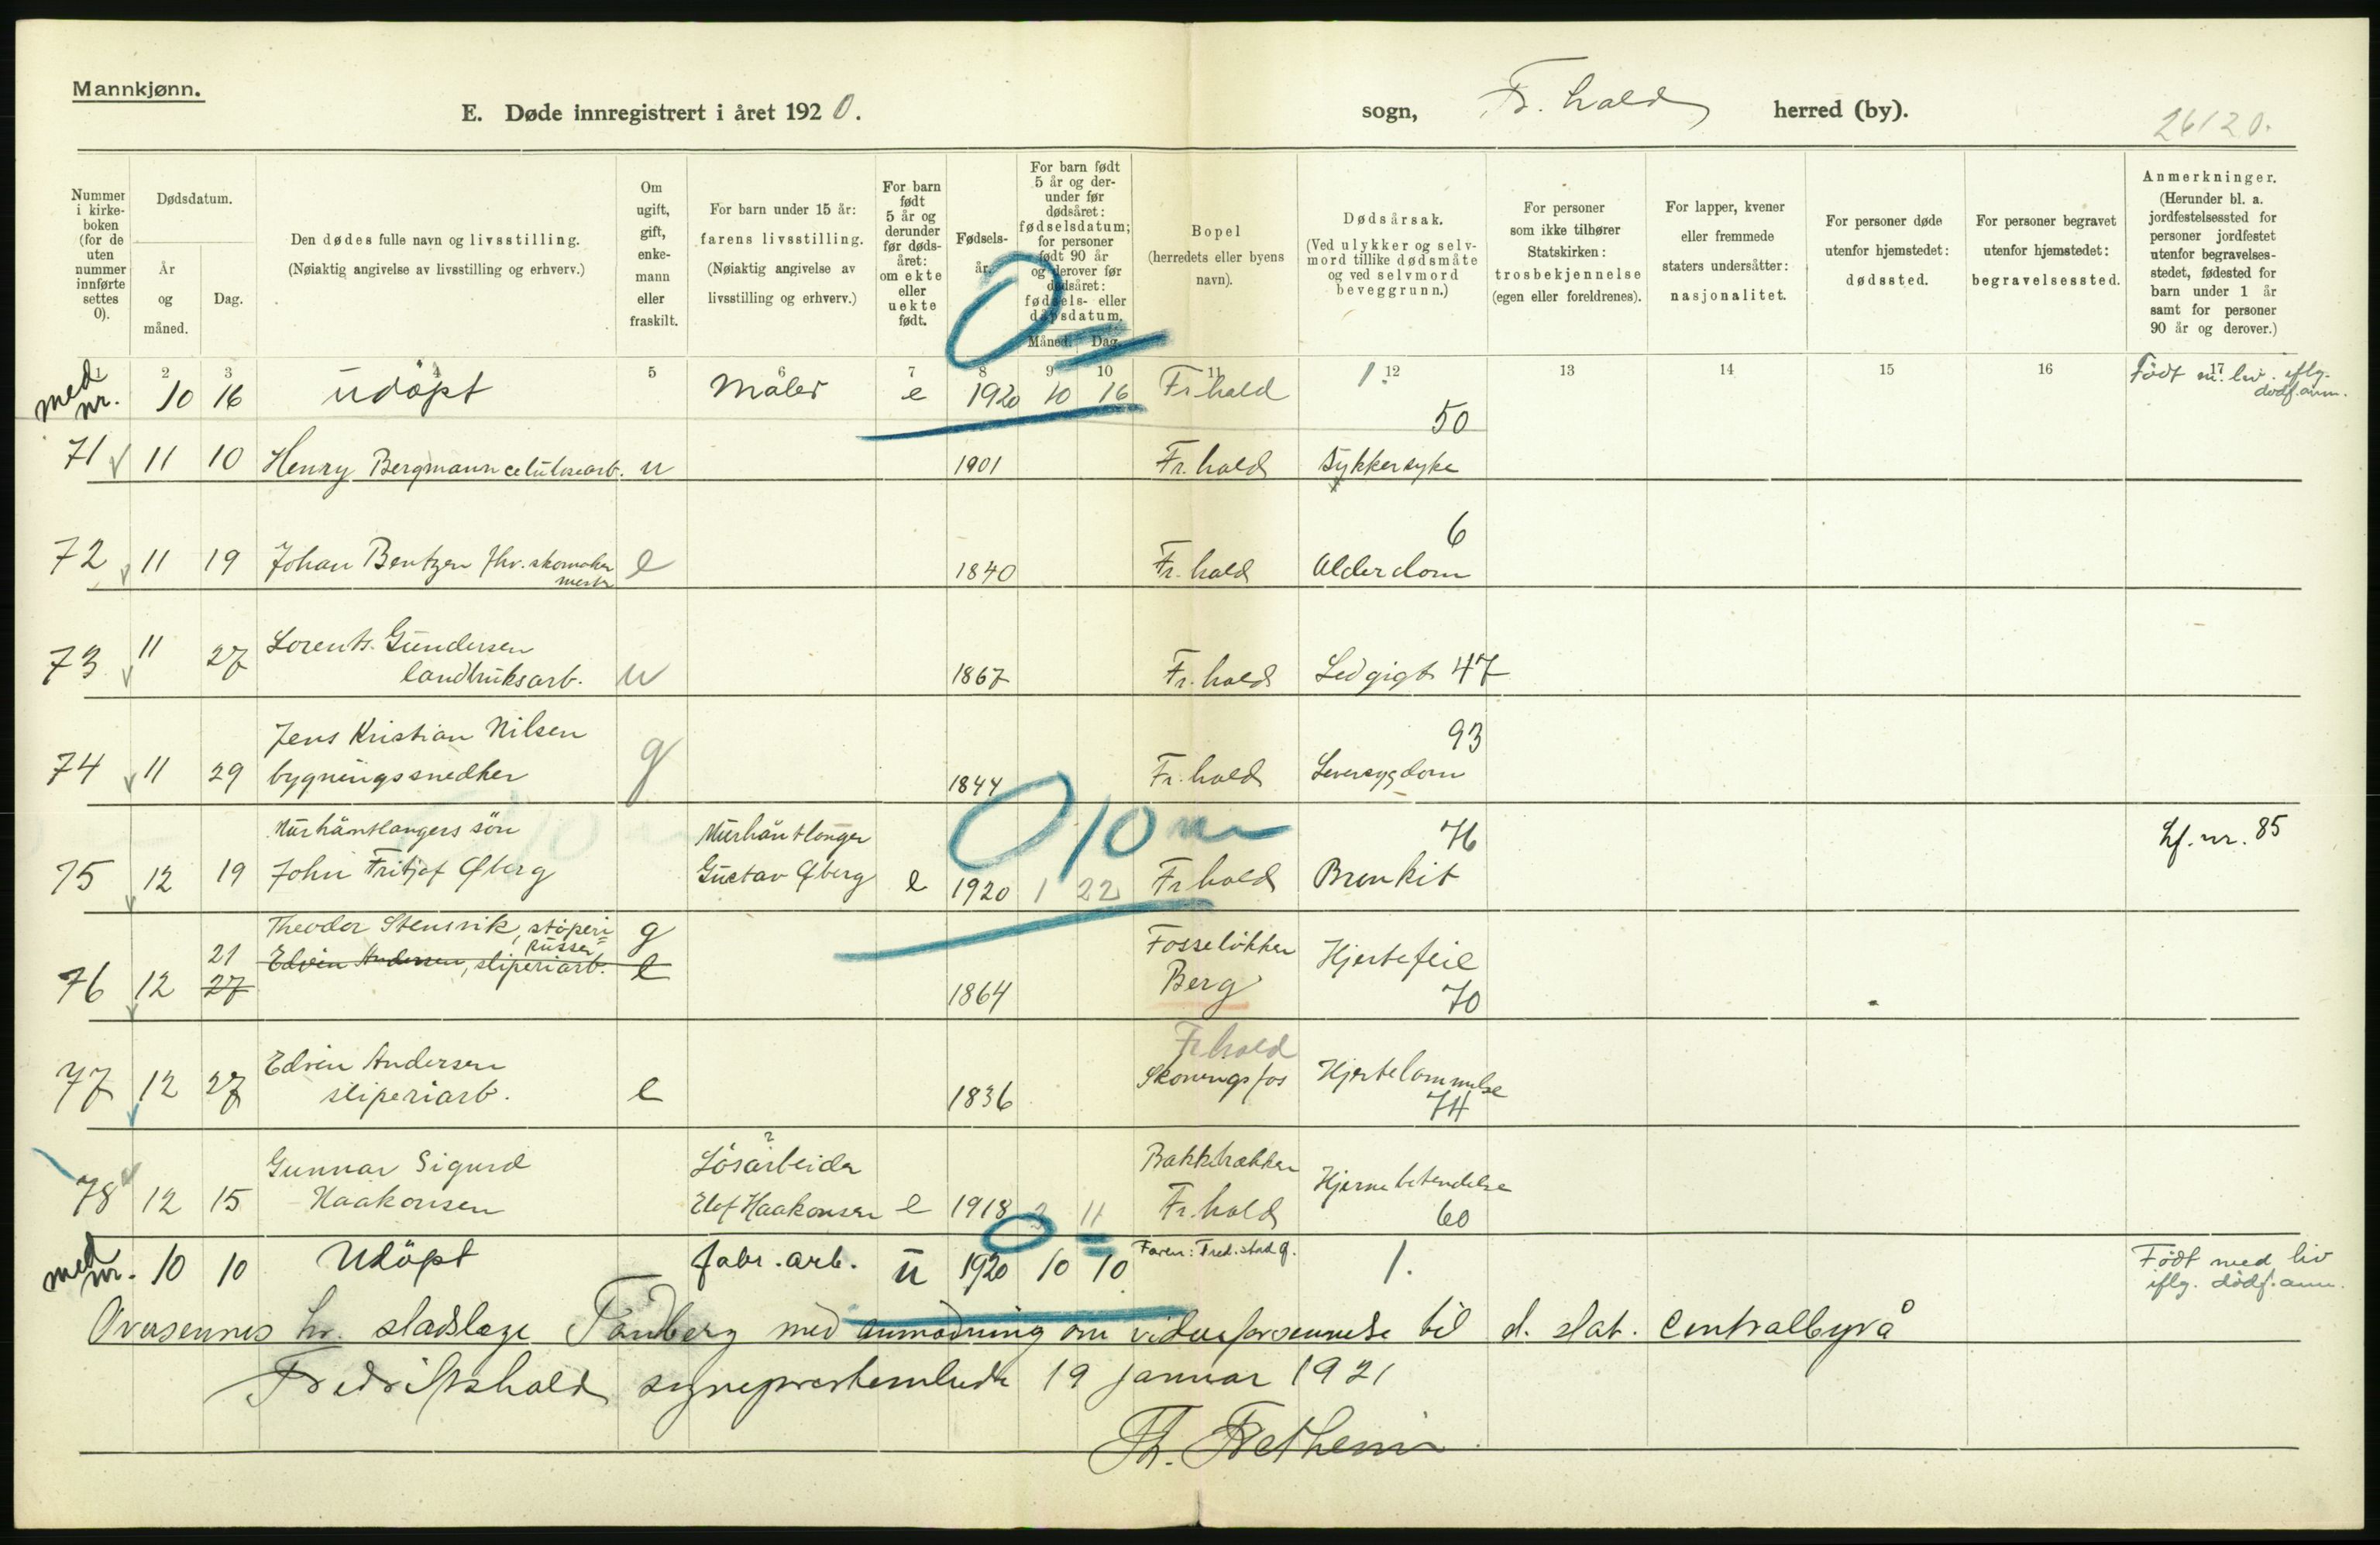 Mannkjønn.
E. Døde innregistrert i året 1920.
sogn, Fr.hald herred (by).
26120.
Nummer i kirke-boken (for de uten nummer innførte settes 0).
Dødsdatum.
År og måned.
Dag.
Den dødes fulle navn og livsstilling.
(Nøiaktig angivelse av livsstilling og erhverv.)
Om ugift, gift, enke-mann eller fraskilt.
For barn under 15 år: farens livsstilling.
(Nøiaktig angivelse av livsstilling og erhverv.)
For barn født 5 år og derunder før døds-året: om ekte eller uekte født.
Fødsels-år.
For barn født 5 år og der-under før dødsåret: fødselsdatum; for personer født 90 år og derover før dødsåret: fødsels- eller dåpsdatum.
Måned. Dag.
Bopel (herredets eller byens navn).
Dødsårsak.
(Ved ulykker og selv-mord tillike dødsmåte og ved selvmord beveggrunn.)
For personer som ikke tilhører Statskirken: trosbekjennelse (egen eller foreldrenes).
For lapper, kvener eller fremmede staters undersåtter: nasjonalitet.
For personer døde utenfor hjemstedet: dødssted.
For personer begravet utenfor hjemstedet: begravelsessted.
Anmerkninger.
(Herunder bl. a. jordfestelsessted for personer jordfestet utenfor begravelses-stedet, fødested for barn under 1 år samt for personer 90 år og derover.)
1 2 3 4 5 6 7 8 9 10 11 12 13 14 15 16 17
0
med nr. 10 16 udöpt Maler e 1920 10 16 Fr.hald 1. Födt m. liv. iflg. dödf.anm.
50
71 11 10 Henry Bergmann celulosearb. u 1901 Fr.hald Sykkersyke
6
72 11 19 Johan Bentzen fhv. skomaker mester e 1840 Fr.hald Alderdom
73 11 27 Lorents Gundersen landbruksarb. u 1867 Fr.hald Ledgigt 47
93
74 11 29 Jens Kristian Nilsen bygningssnedker g 1844 Fr.hald Leversygdom
0 10 m
75 12 19 Murhåntlangers sön John Fritjof Øberg Murhåntlanger Gustav Øberg e 1920 1 22 Fr.hald 76 Bronkit Lf. nr. 85
76 12 21 27 Theodor Stensvik, stöperi pusser g
Edvin Andersen, sliperiarb. e 1864 Fosselökken Berg Hjertefeil 70
77 12 27 Edvin Andersen sliperiarb. e 1836 Fr.hald Skoningsfos Hjertelammelse 74
78 12 15 Gunnar Sigurd Haakonsen Lösarbeider Elef Haakonsen e 1918 3 11 Bakkebrækken Fr.hald Hjernebetendelse 60
0
med nr. 10 10 Udöpt fabr. arb. u 1920 10 10 Faren: Fred.stad g. 1. Födt med liv iflg. dödf.anm.
Oversennes hr. stadslæge Tandberg med anmodning om videreforsennelse til d. stat. Centralbyrå
Fredrikshald sogneprestembede 19 januar 1921
Th. Bethem